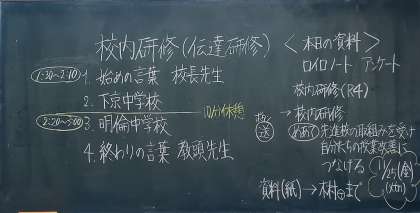 校内研修(伝達研修)
1:30~2:10
1. 始めの言葉 校長先生
2. 下京中学校
10分休憩
2:20~3:00
3. 明倫中学校
4. 終わりの言葉 教頭先生
<本日の資料>
ロイロノート アンケート
校内研修(R4)
→校内研修
めあて 先進校の取組みを受け
自分たちの授業改善に
つなげる
1/25(金)
資料(紙)→木村まで